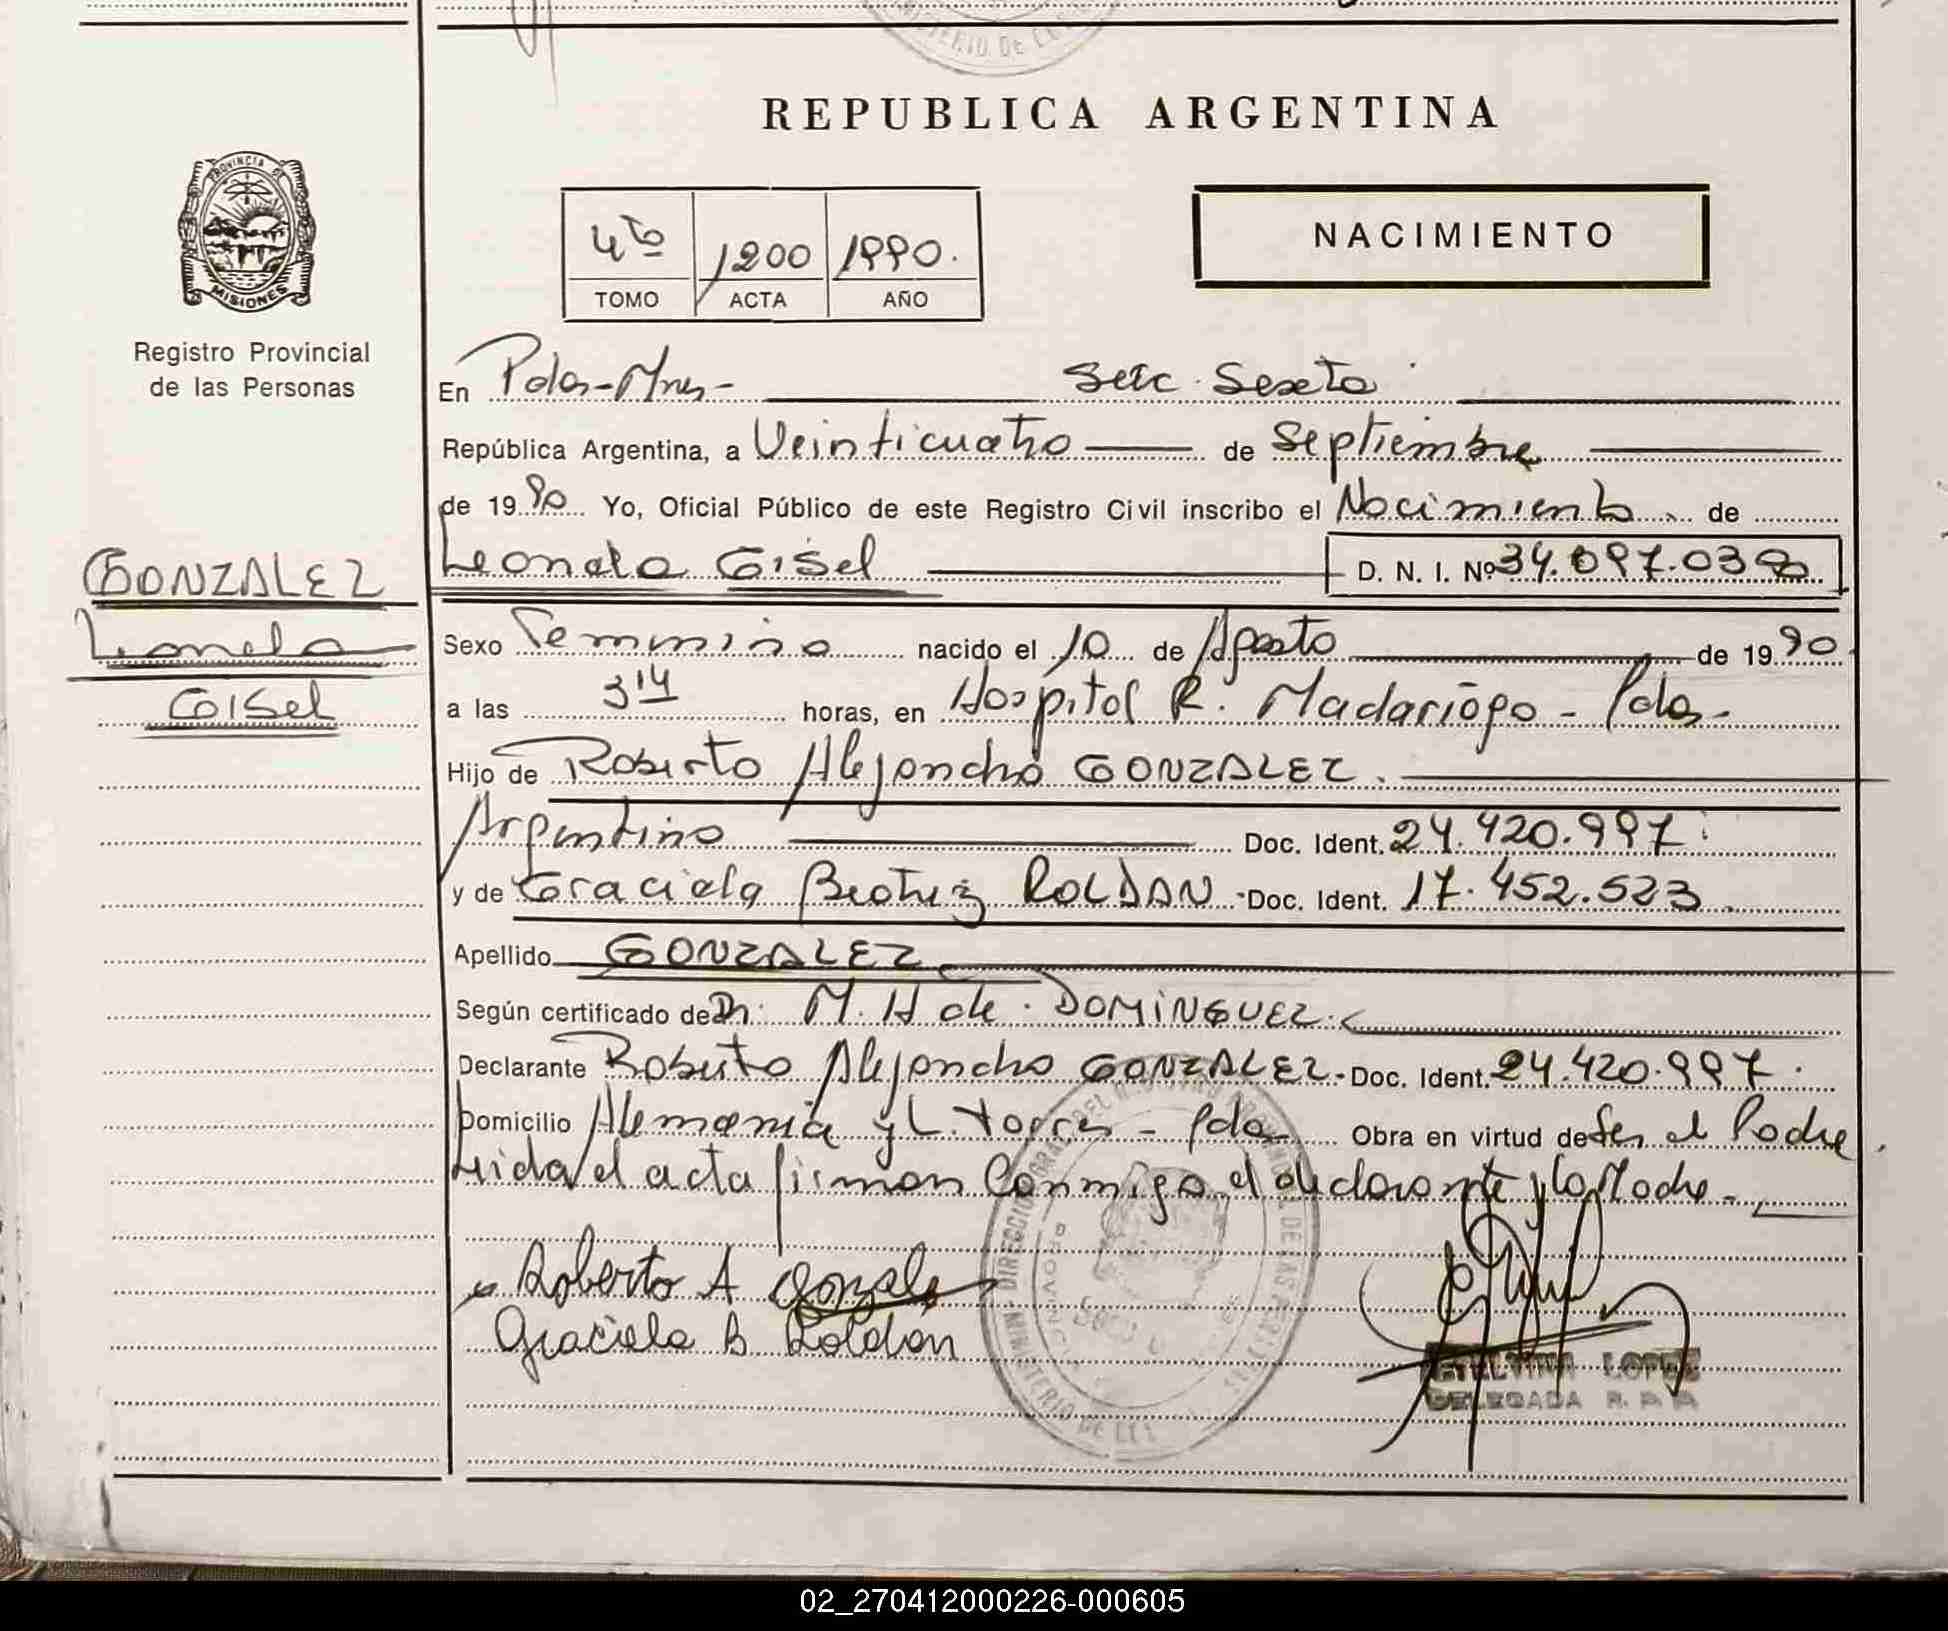 MINISTERIO DE
REPUBLICA ARGENTINA
PROVINCIA DE
MISIONES
Registro Provincial
de las Personas
4to 1200 1990.
TOMO ACTA AÑO
NACIMIENTO
En Pdas-Mnes- Secc. Sexta
República Argentina, a Veinticuatro de Septiembre
de 1990 Yo, Oficial Público de este Registro Civil inscribo el Nacimiento de
GONZALEZ
Leonela Gisel D. N. I. Nº 34.097.03
Leonela
Sexo Femenino nacido el 10 de Agosto de 1990.
Gisel
a las 3 14 horas, en Hospital R. Madariaga - Pdas-
Hijo de Roberto Alejandro GONZALEZ.
Argentino Doc. Ident. 24.420.997.
y de Graciela Beatriz ROLDAN - Doc. Ident. 17.452.523
Apellido GONZALEZ
Según certificado de Dr: M. H de. DOMINGUEZ.
Declarante Roberto Alejandro GONZALEZ - Doc. Ident. 24.420.997.
Domicilio Alemania y L. Torres - Pdas Obra en virtud de Ser el Padre.
Leida el acta firman Conmigo el declarante y la Madre.-
Roberto A Gonzale
Graciela B Roldan
LOPEZ
DELEGADA R. P. P
MINISTERIO DE
02_270412000226-000605